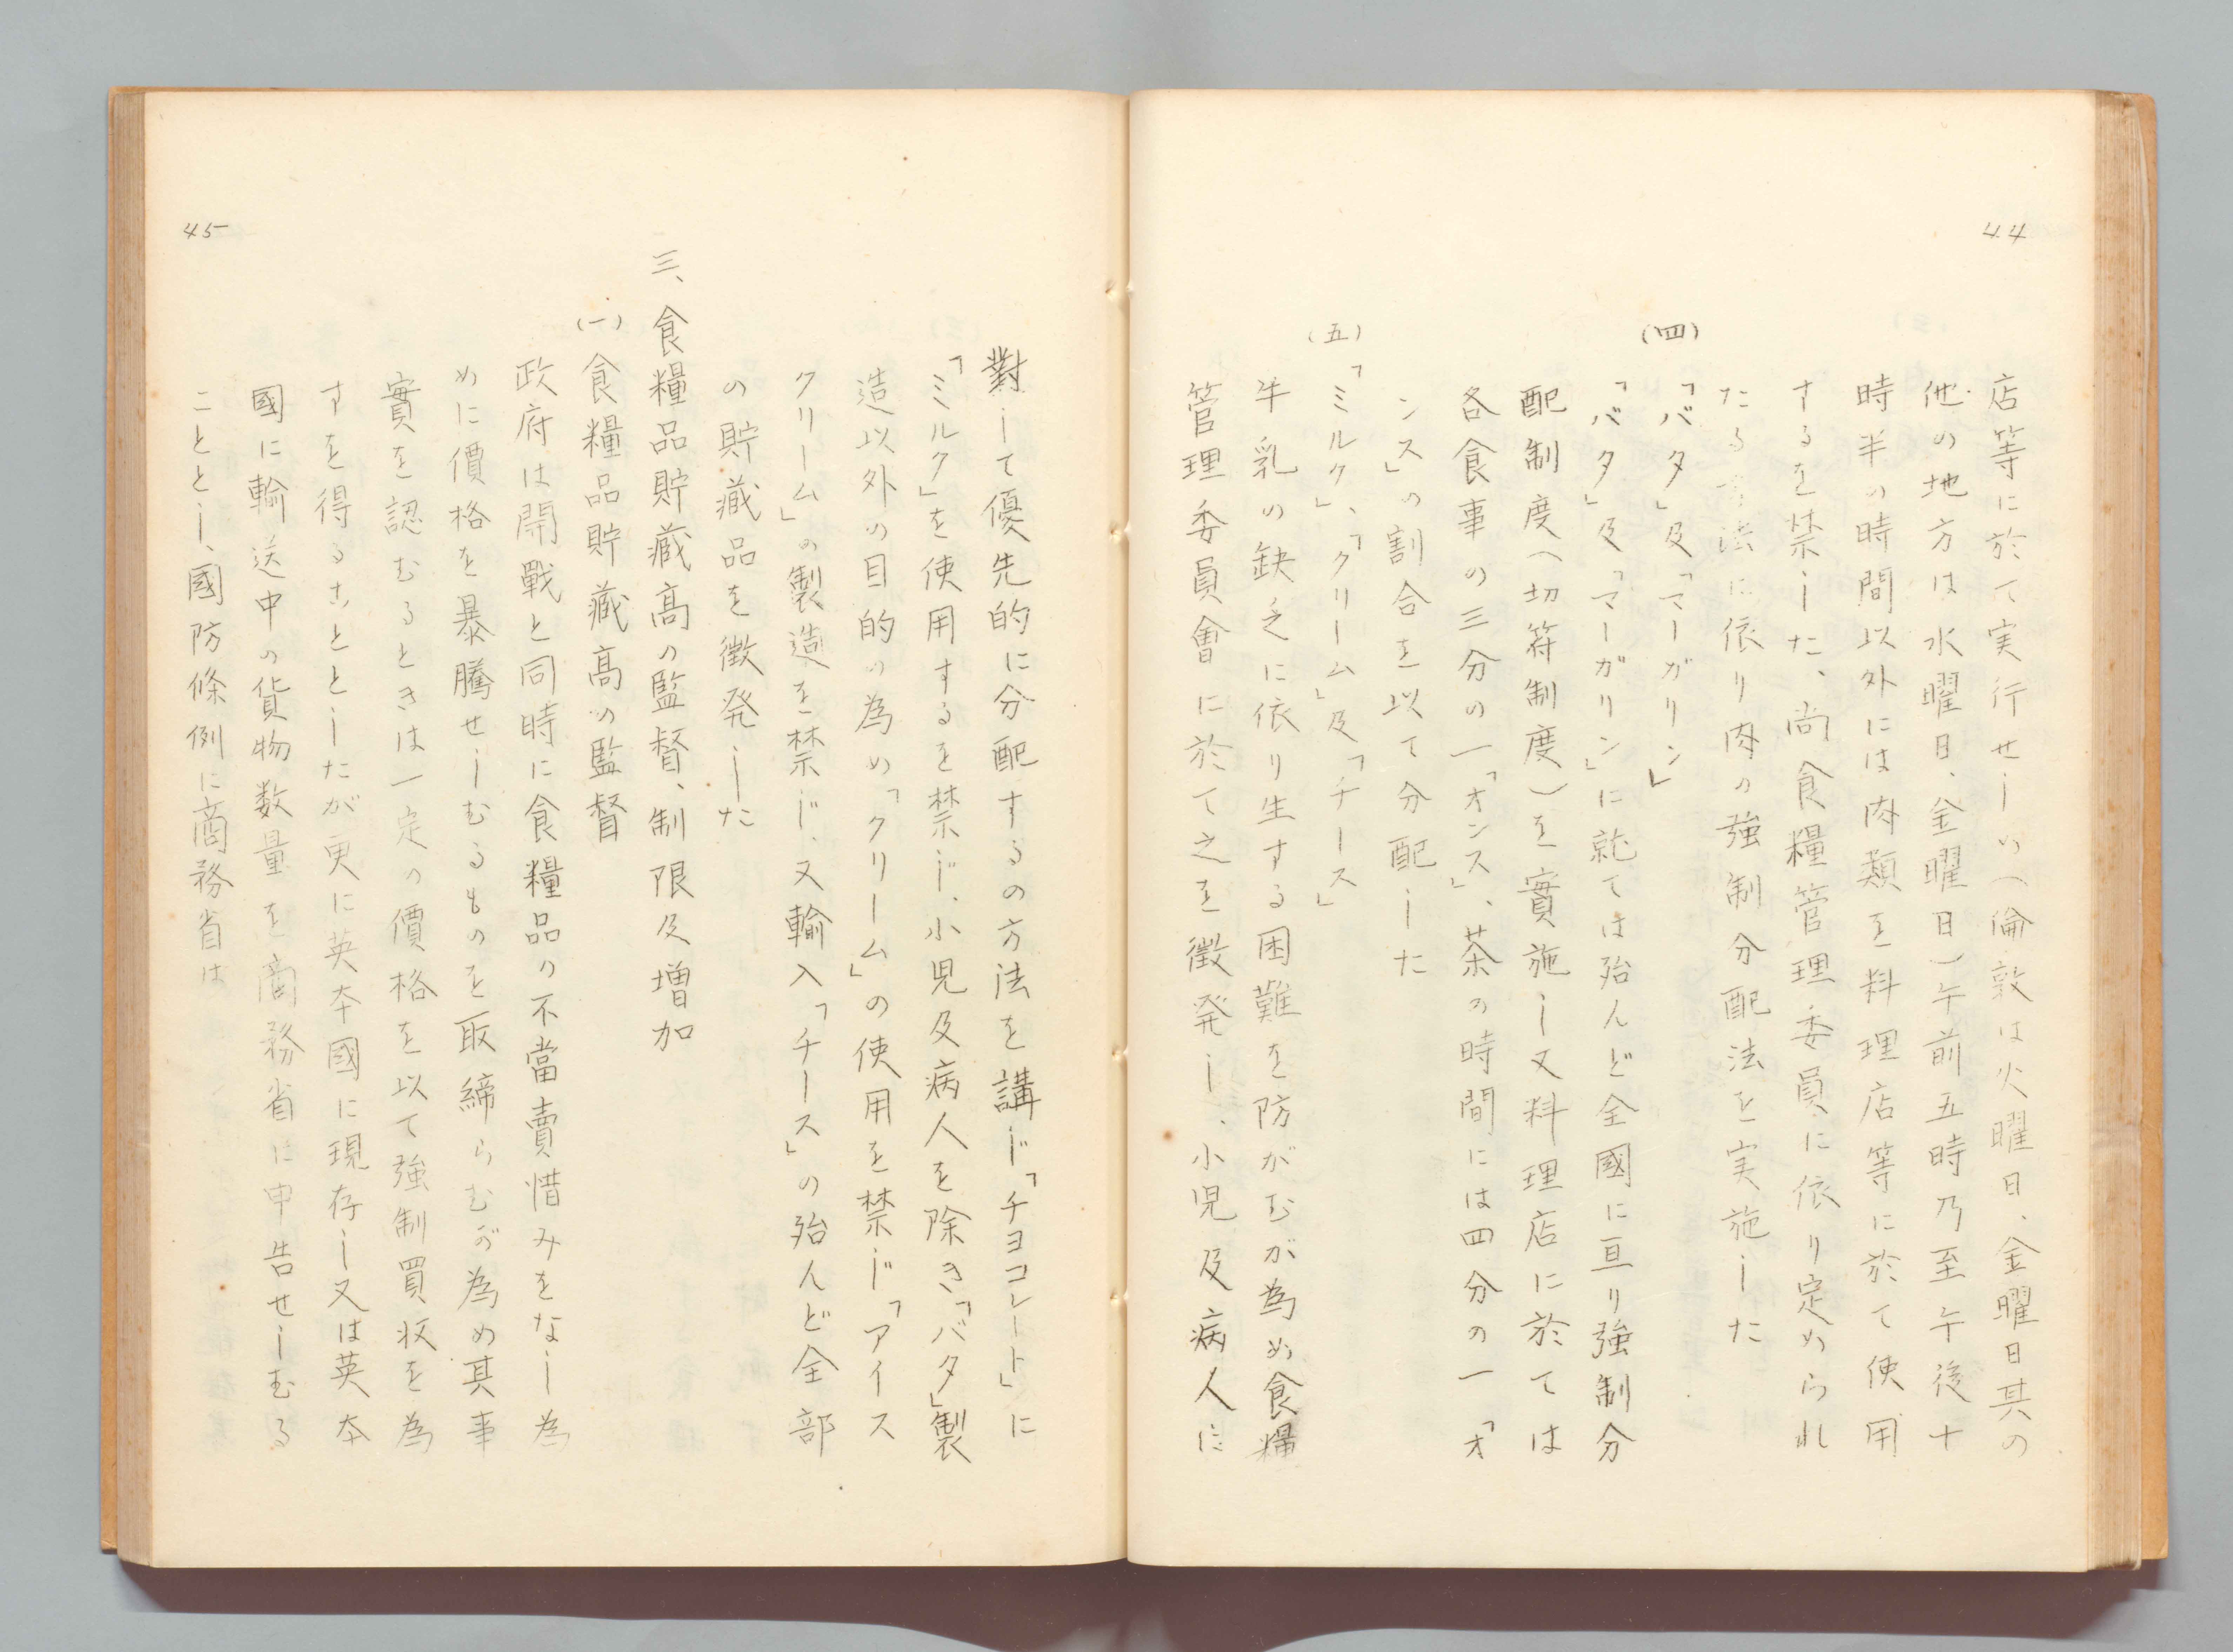 44
店等に於て実行せしめ(倫敦は火曜日、金曜日其の
他の地方は水曜日、金曜日)午前五時乃至午後十
時半の時間以外には肉類を料理店等に於て使用
するを禁じた、尚食糧管理委員に依り定められ
たる方法に依り肉の強制分配法を実施した
(四)「バタ」及「マーガリン」
「バタ」及「マーガリン」に就ては殆んど全國に亘り強制分
配制度(切符制度)を實施し又料理店に於ては
各食事の三分の一「オンス」、茶の時間には四分の一「オ
ンス」の割合を以て分配した
(五)「ミルク」、「クリーム」及「チース」
牛乳の缺乏に依り生する困難を防がむが為め食糧
管理委員會に於て之を徴発し、小児及病人に
45
對して優先的に分配するの方法を講じ「チヨコレート」に
「ミルク」を使用するを禁じ、小児及病人を除き「バタ」製
造以外の目的の為め「クリーム」の使用を禁じ「アイス
クリーム」の製造を禁じ、又輸入「チース」の殆んど全部
の貯蔵品を徴発した
三、食糧品貯蔵高の監督、制限及増加
(一)食糧品貯蔵高の監督
政府は開戰と同時に食糧品の不當賣惜みをなし為
めに價格を暴騰せしむるものを取締らむが為め其事
實を認むるときは一定の價格を以て強制買収を為
すを得ることとしたが更に英本國に現存し又は英本
國に輸送中の貨物数量を商務省に申告せしむる
こととし、國防條例に商務省は